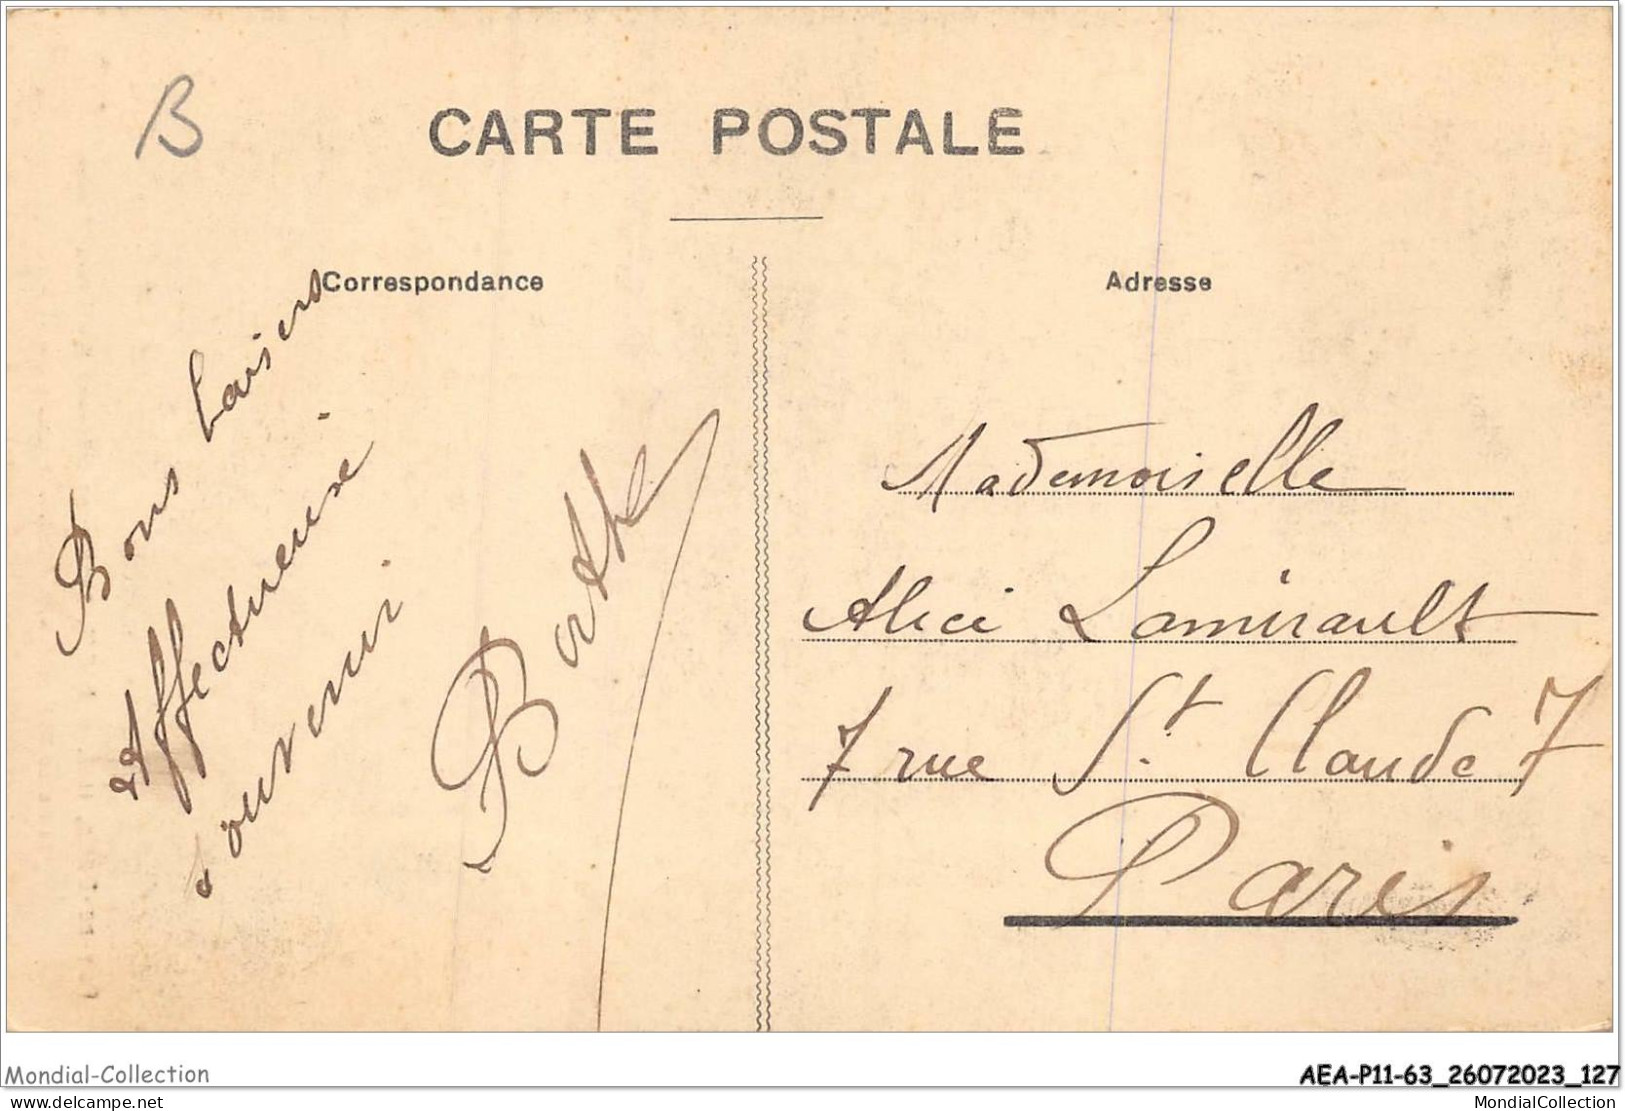 B
CARTE POSTALE
Correspondance
Adresse
Bons baisers
Affectueuse
souvenir
Berthe
Mademoiselle
Alice Lamirault
7 rue St. Claude 7
Paris
Mondial-Collection
AEA-P11-63_26072023_127
delcampe.net
MondialCollection